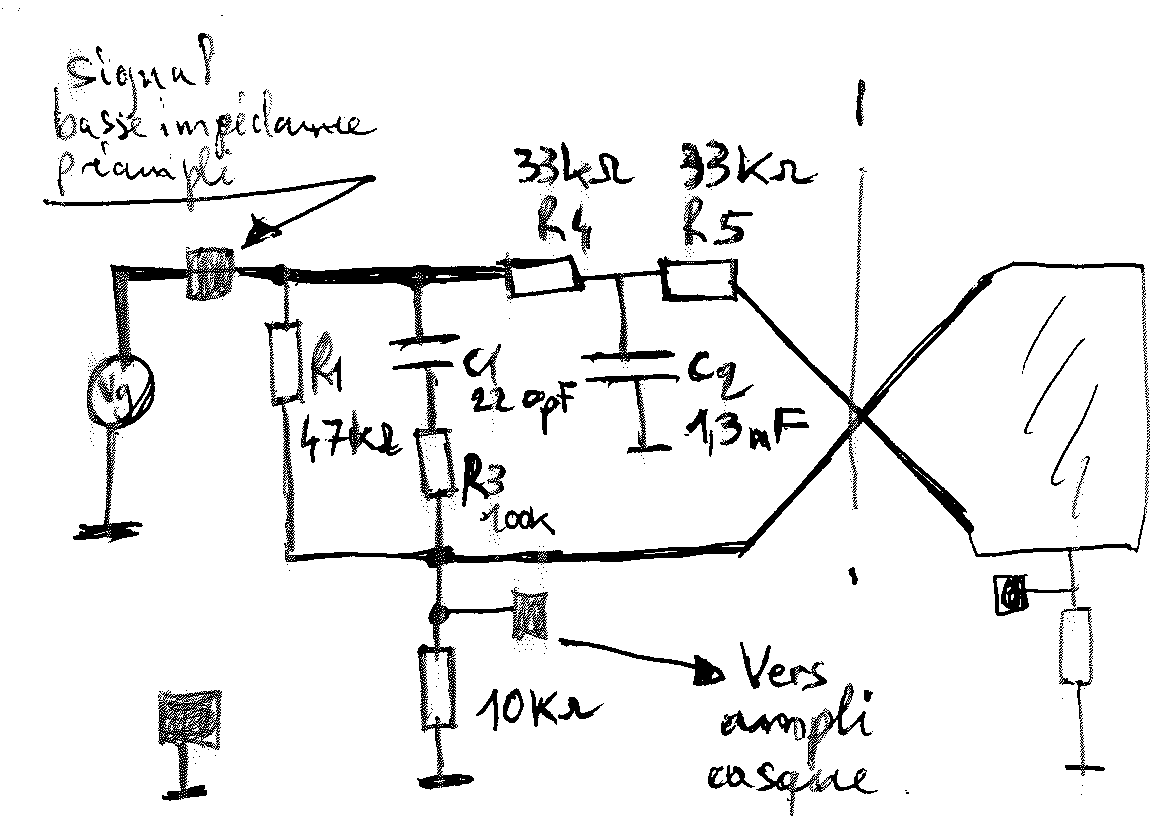 signal
basse impédance
préampli
33kΩ
R4
33KΩ
R5
Vg
R1
47kΩ
C1
220pF
R3
100k
C2
1,3mF
10KΩ
Vers
ampli
casque